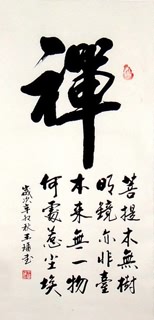 禪
菩提本無樹
明鏡亦非臺
本來無一物
何處惹尘埃
歲次辛秋王書